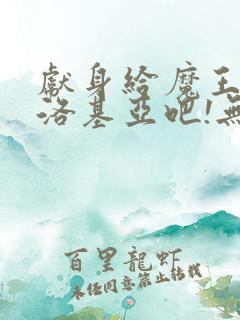 獻身給魔王
洛基亞吧!無
百里龍蝦
未經同意禁止轉載